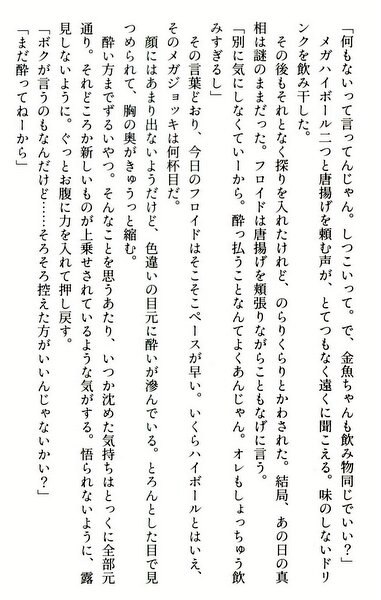 「何もないって言ってんじゃん。しつこいって。で、金魚ちゃんも飲み物同じでいい？」
メガハイボール二つと唐揚げを頼む声が、とてつもなく遠くに聞こえる。味のしないドリ
ンクを飲み干した。
その後もそれとなく探りを入れたけれど、のらりくらりとかわされた。結局、あの日の真
相は謎のままだった。フロイドは唐揚げを頬張りながらこともなげに言う。
「別に気にしなくてぃーから。酔っ払うことなんてよくあんじゃん。オレもしょっちゅう飲
みすぎるし」
その言葉どおり、今日のフロイドはそこそこペースが早い。いくらハイボールとはいえ、
そのメガジョッキは何杯目だ。
顔にはあまり出ないようだけど、色違いの目元に酔いが滲んでいる。とろんとした目で見
つめられて、胸の奥がきゅうっと縮む。
酔い方までずるいやつ。そんなことを思うあたり、いつか沈めた気持ちはとっくに全部元
通り。それどころか新しいものが上乗せされているような気がする。悟られないように、露
見しないように。ぐっとお腹に力を入れて押し戻す。
「ボクが言うのもなんだけど……そろそろ控えた方がいいんじゃないかい？」
「まだ酔ってねーから」